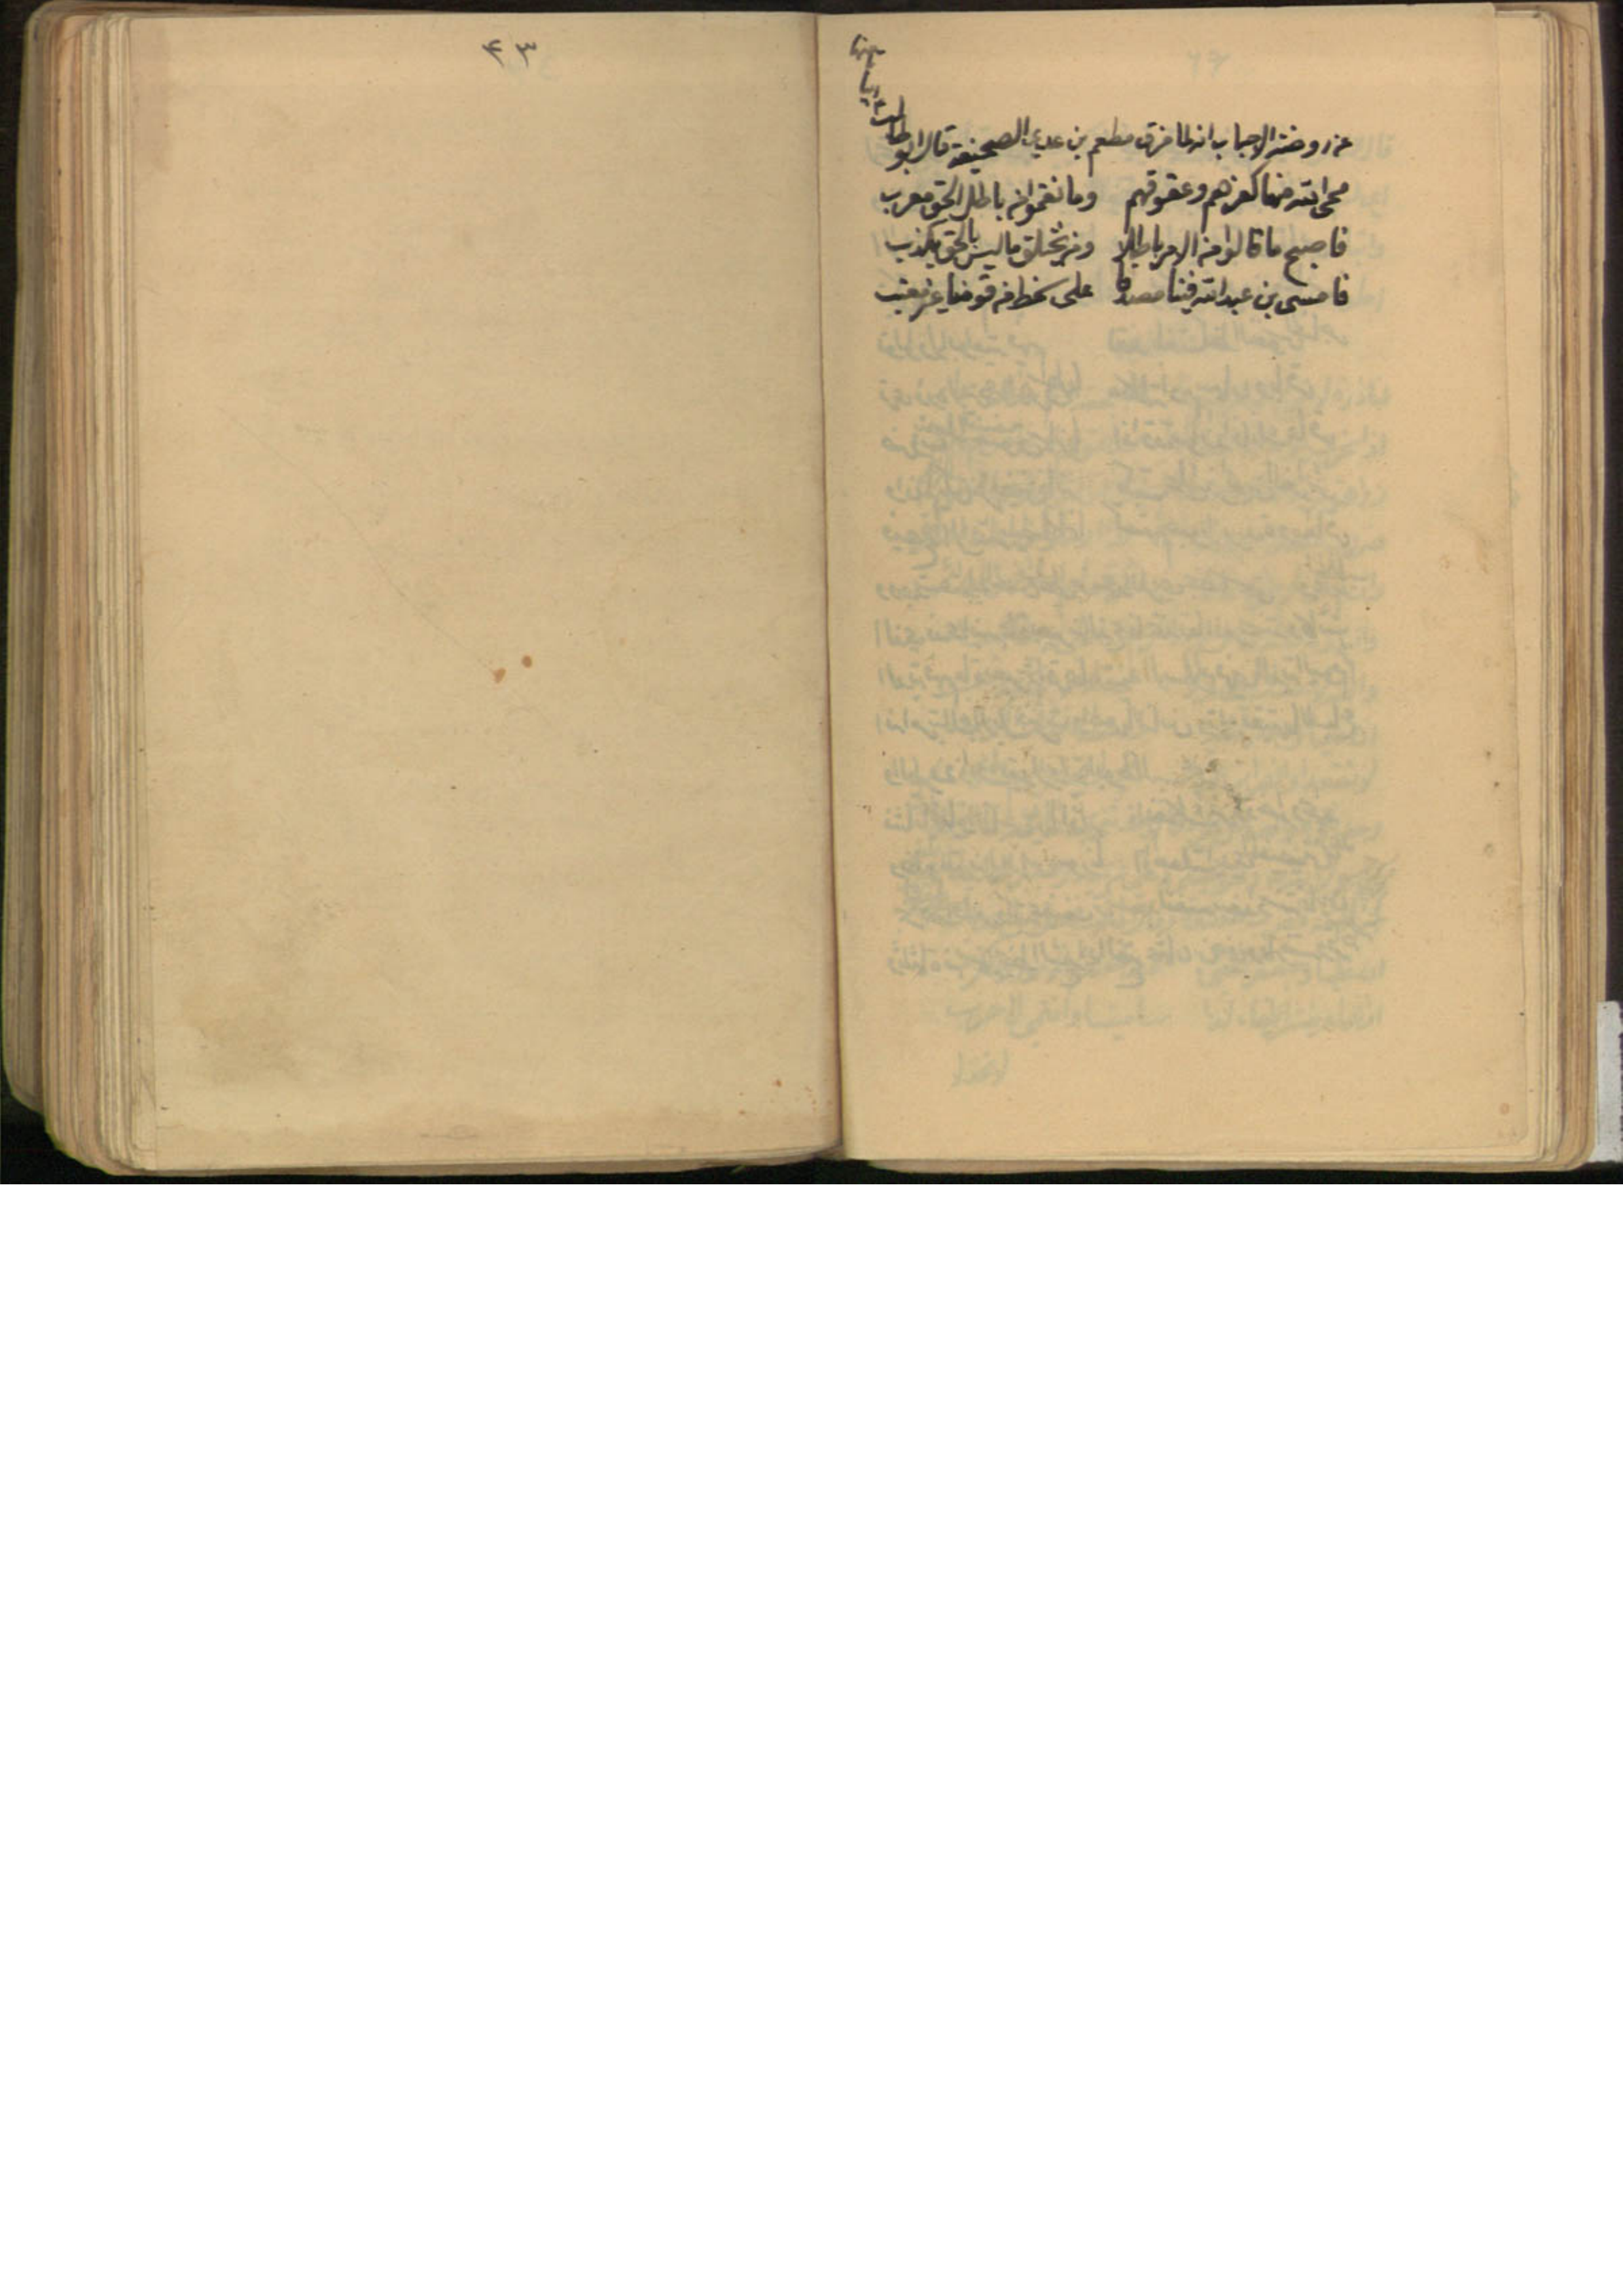 من روضة الاحباب انه لما مزق مطعم بن عدي الصحيفة قال ابو طالب ابياتا منها
محى الله منها كفرهم وعقوقهم وما نقموا من باطل الحق معرب
فاصبح ما قالوا من الامر باطلا ومن يختلق ما ليس بالحق يكذب
فامسى بن عبد الله فينا مصدقا على سخط من قومنا غير معتب
٤٣